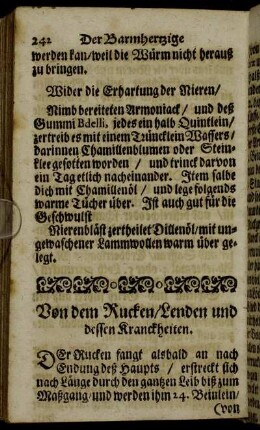 242 Der Barmhertzige
werden kan/weil die Würm nicht herauß
zu bringen.
Wider die Erhartung der Nieren/
Nimb bereiteten Armoniack/ und deß
Gummi Bdelli, jedes ein halb Quintlein/
zertreib es mit einem Trüncklein Wassers/
darinnen Chamillenblumen oder Stein-
klee gesotten worden/ und trinck darvon
ein Tag etlich nacheinander. Item salbe
dich mit Chamillenöl/ und lege folgends
warme Tücher über. Ist auch gut für die
Geschwulst
Nierenbläst zertheilet Dillenöl/ mit un-
gewaschener Lammwollen warm über ge-
legt.
Von dem Rucken/Lenden und
dessen Kranckheiten.
DEr Rucken fangt alsbald an nach
Endung deß Haupts/ erstreckt sich
nach Länge durch den gantzen Leib biß zum
Maßgang/ und werden ihm 24. Beinlein/
(von